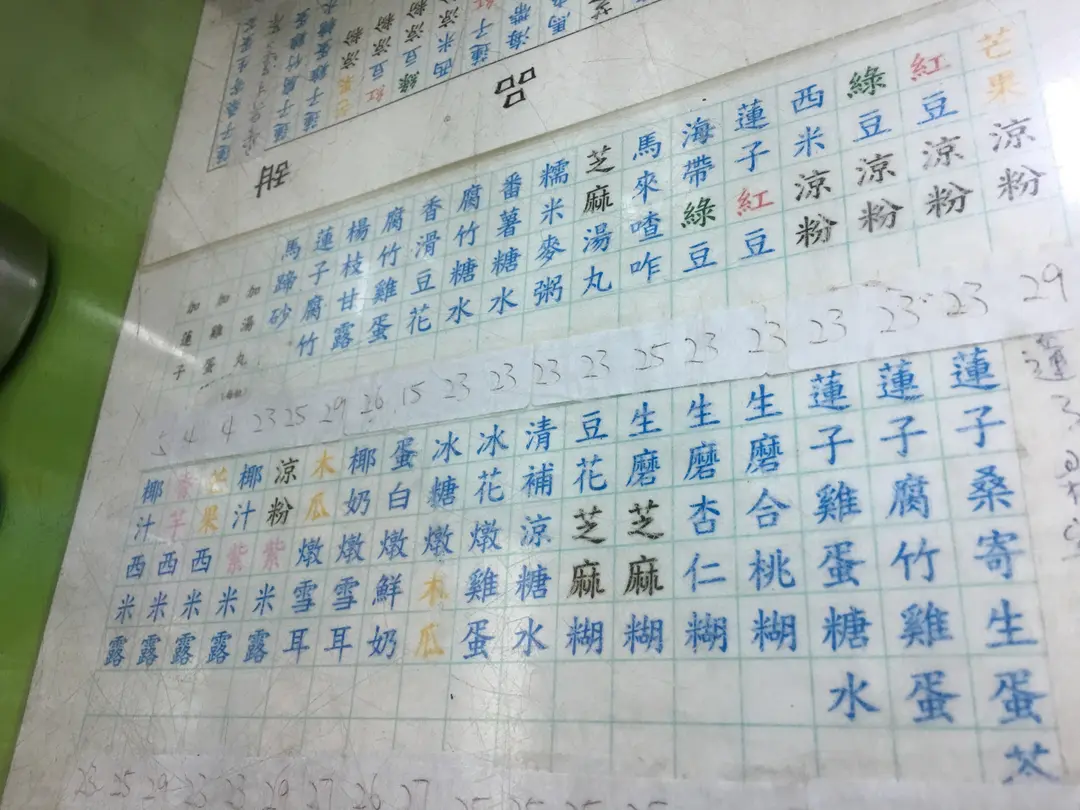 甜品
芒果涼粉
紅豆涼粉
綠豆涼粉
西米涼粉
蓮子紅豆
海帶綠豆
馬來喳咋
芝麻湯丸
糯米麥粥
番薯糖水
腐竹糖水
香滑豆花
腐竹雞蛋
楊枝甘露
蓮子腐竹
馬蹄砂
加湯丸
加雞蛋
加蓮子
5 4 4 23 25 29 26 15 23 23 23 23 25 23 23 23 23 23 29
蓮子桑寄生蛋茶
蓮子腐竹雞蛋
蓮子雞蛋糖水
生磨合桃糊
生磨杏仁糊
生磨芝麻糊
豆花芝麻糊
清補涼糖水
冰花燉雞蛋
冰糖燉木瓜
蛋白燉鮮奶
椰奶燉雪耳
木瓜燉雪耳
涼粉紫米露
椰汁紫米露
芒果西米露
香芋西米露
椰汁西米露
23 25 29 23 23 29 27 26 27 25 25 25 25